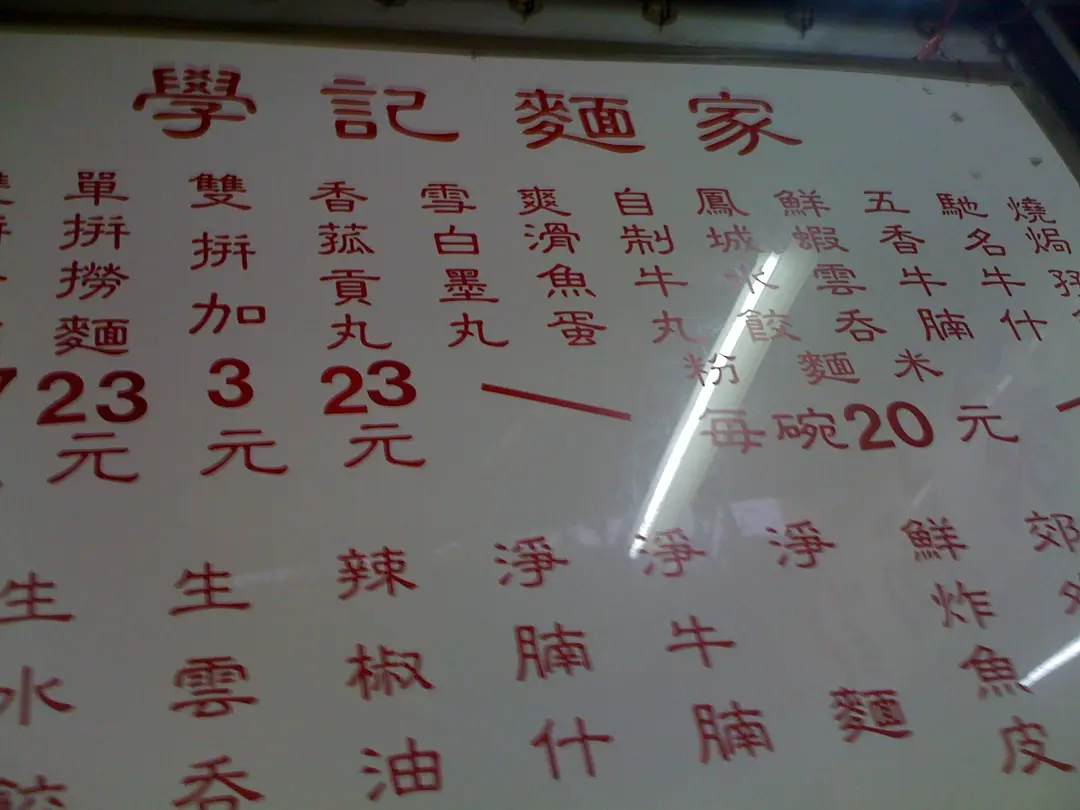 學記麵家
燒焗
馳名牛什
五香牛腩
鮮蝦雲吞
鳳城水餃
自制牛丸
爽滑魚蛋
雪白墨丸
香菇貢丸
粉麵米
每碗20元
23元
雙拼加3元
單拼撈麵23元
郊
鮮炸魚皮
淨麵
淨牛腩
淨腩什
辣椒油
生雲吞
生水餃